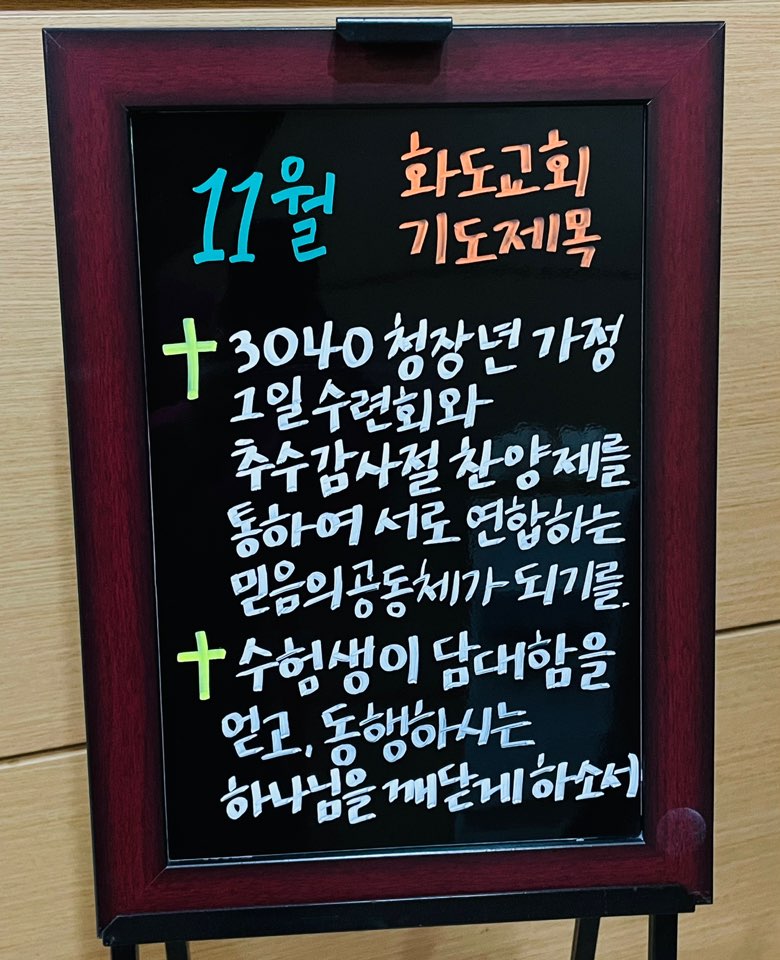 11월
화도교회
기도제목
3040 청장년 가정
1일 수련회와
추수감사절 찬양제를
통하여 서로 연합하는
믿음의공동체가 되기를.
수험생이 담대함을
얻고, 동행하시는
하나님을 깨닫게 하소서